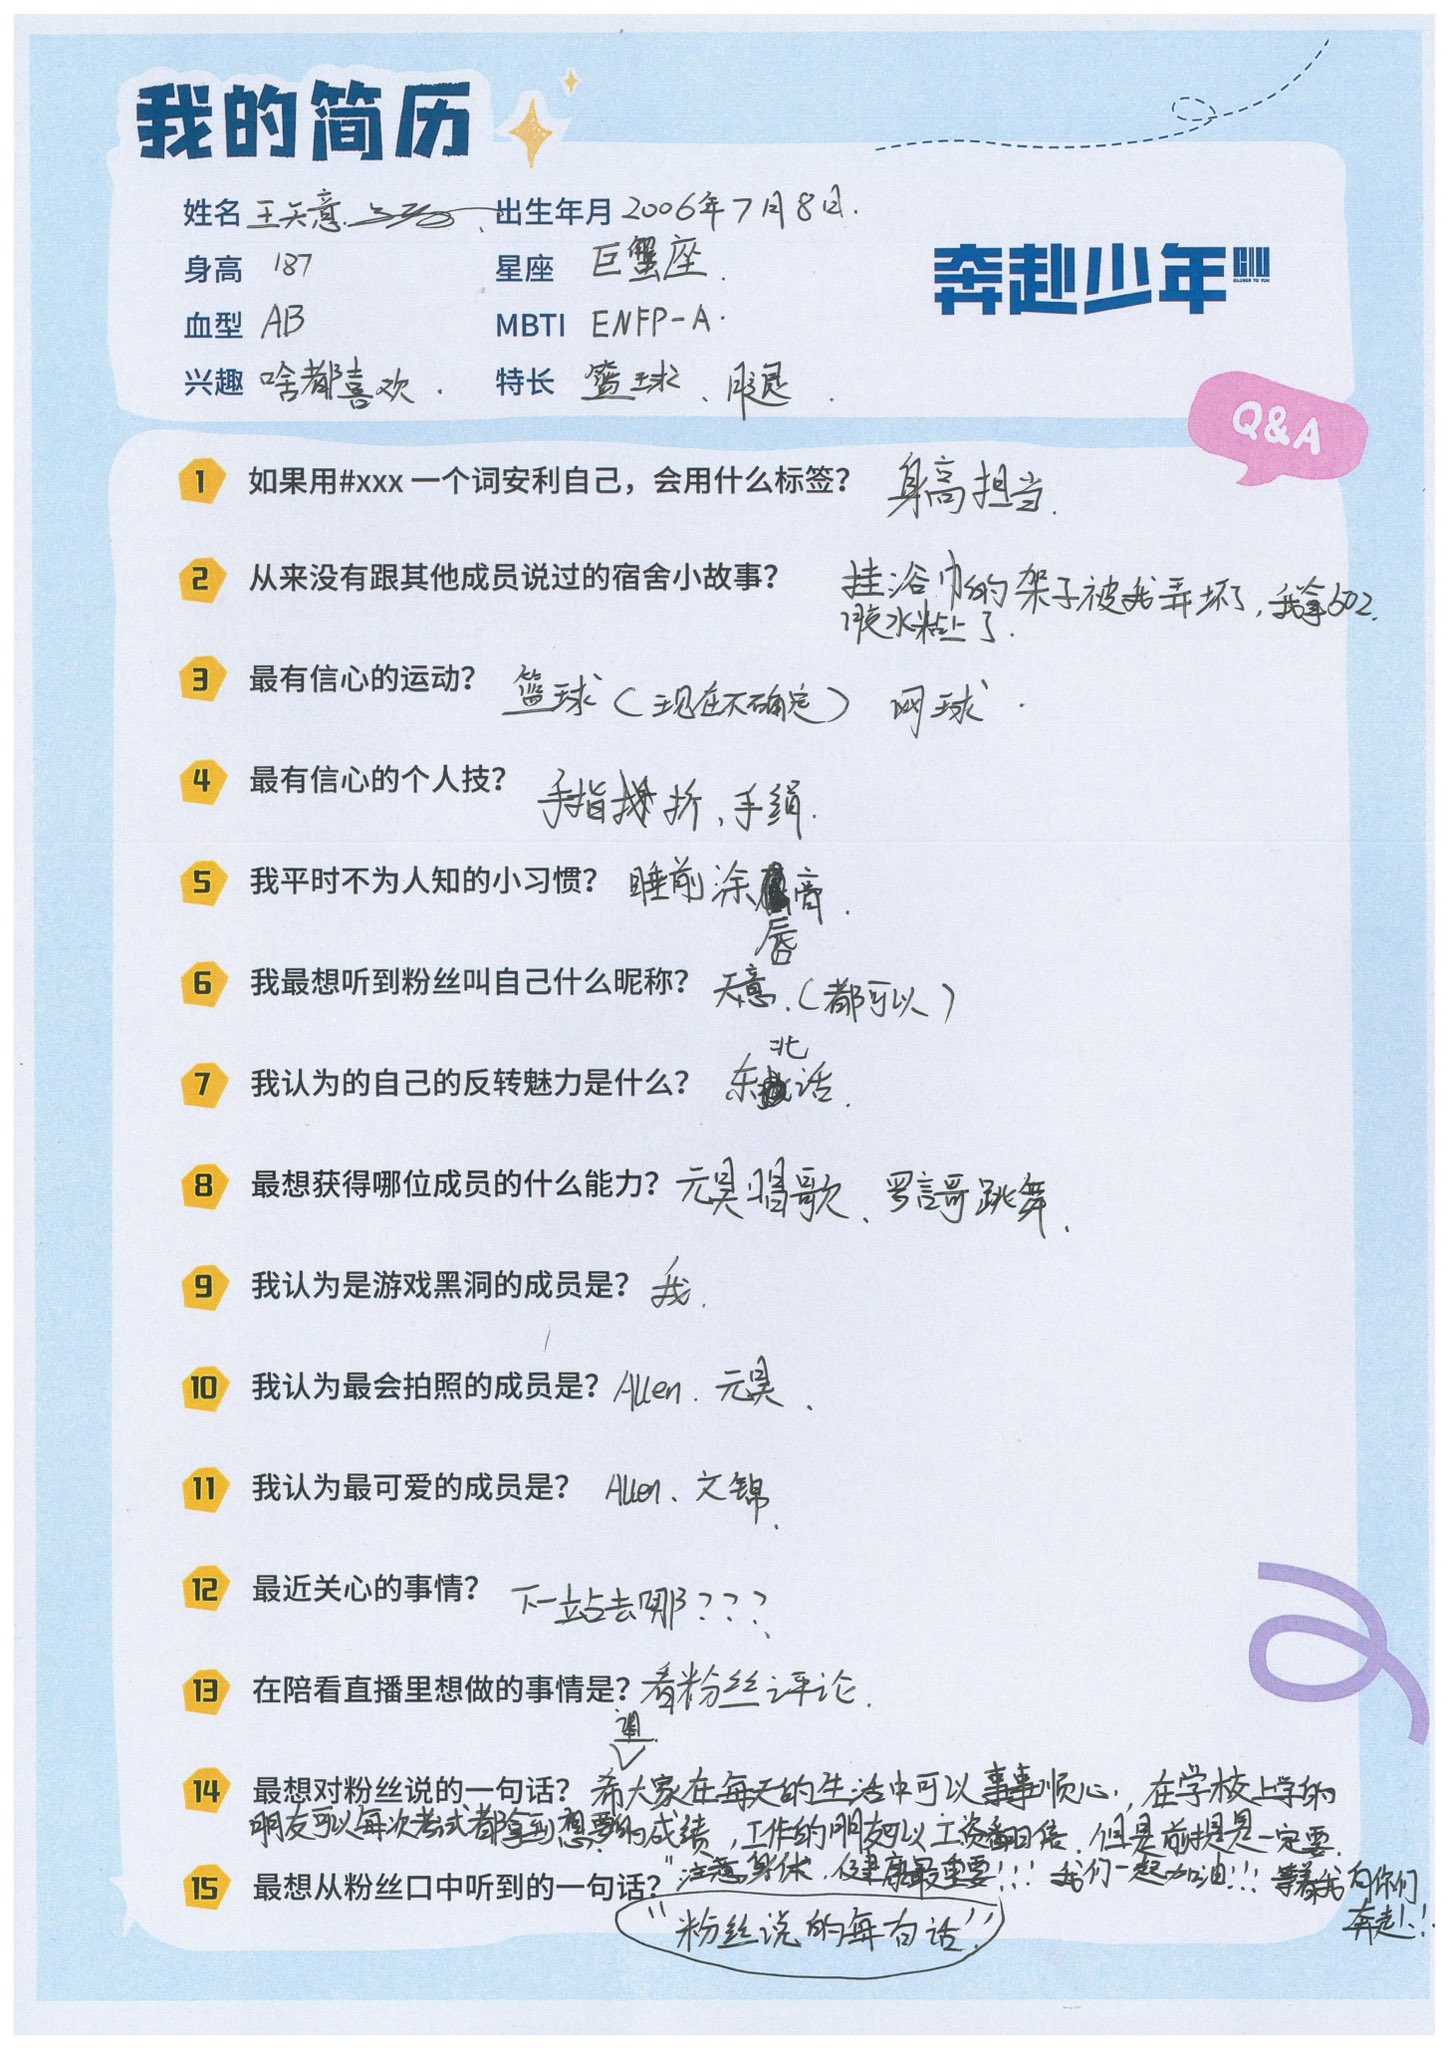 我的简历
姓名 王天意 出生年月 2006年7月8日.
身高 187 星座 巨蟹座.
奔赴少年 CIU
CLOSER TO YOU
血型 AB MBTI ENFP-A.
兴趣 啥都喜欢. 特长 篮球、腿.
Q&A
1 如果用#xxx 一个词安利自己，会用什么标签？ 身高担当.
2 从来没有跟其他成员说过的宿舍小故事？ 挂浴巾的架子被我弄坏了, 我拿502
胶水粘上了.
3 最有信心的运动？ 篮球（现在不确定） 网球.
4 最有信心的个人技？ 手指 折, 手绢.
5 我平时不为人知的小习惯？ 睡前涂唇膏.
6 我最想听到粉丝叫自己什么昵称？ 天意.（都可以）
7 我认为的自己的反转魅力是什么？ 东北话.
8 最想获得哪位成员的什么能力？ 元昊唱歌、罗言哥跳舞.
9 我认为是游戏黑洞的成员是？ 我.
10 我认为最会拍照的成员是？ Allen. 元昊.
11 我认为最可爱的成员是？ Allen、文锦.
12 最近关心的事情？ 下一站去哪？？？
13 在陪看直播里想做的事情是？ 看粉丝评论.
14 最想对粉丝说的一句话？ 希望大家在每天的生活中可以事事顺心, 在学校上学的
朋友可以每次考试都拿到想要的成绩, 工作的朋友可以工资翻倍. 但是前提是一定要
注意身体, 健康最重要!!! 我们一起加油!!! 等着我向你们
奔赴!!
15 最想从粉丝口中听到的一句话？
"粉丝说的每句话".